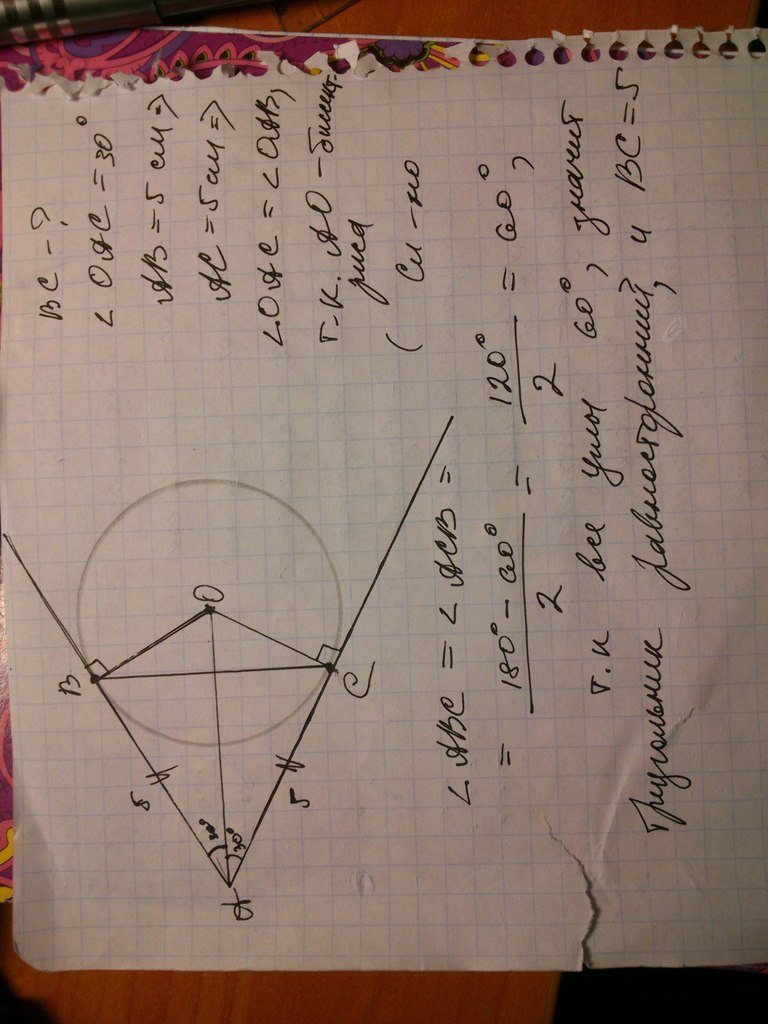 BC - ?
∠OAC = 30°
AB = 5 см ⇒
AC = 5 см ⇒
∠OAC = ∠OAB,
т.к. AO - биссект-
риса
( Св-во
B
O
C
A
5
5
30°
30°
∠ABC = ∠ACB =
= 180° - 60° / 2 = 120° / 2 = 60°,
т.к все углы 60°, значит
треугольник равносторонний, и BC = 5